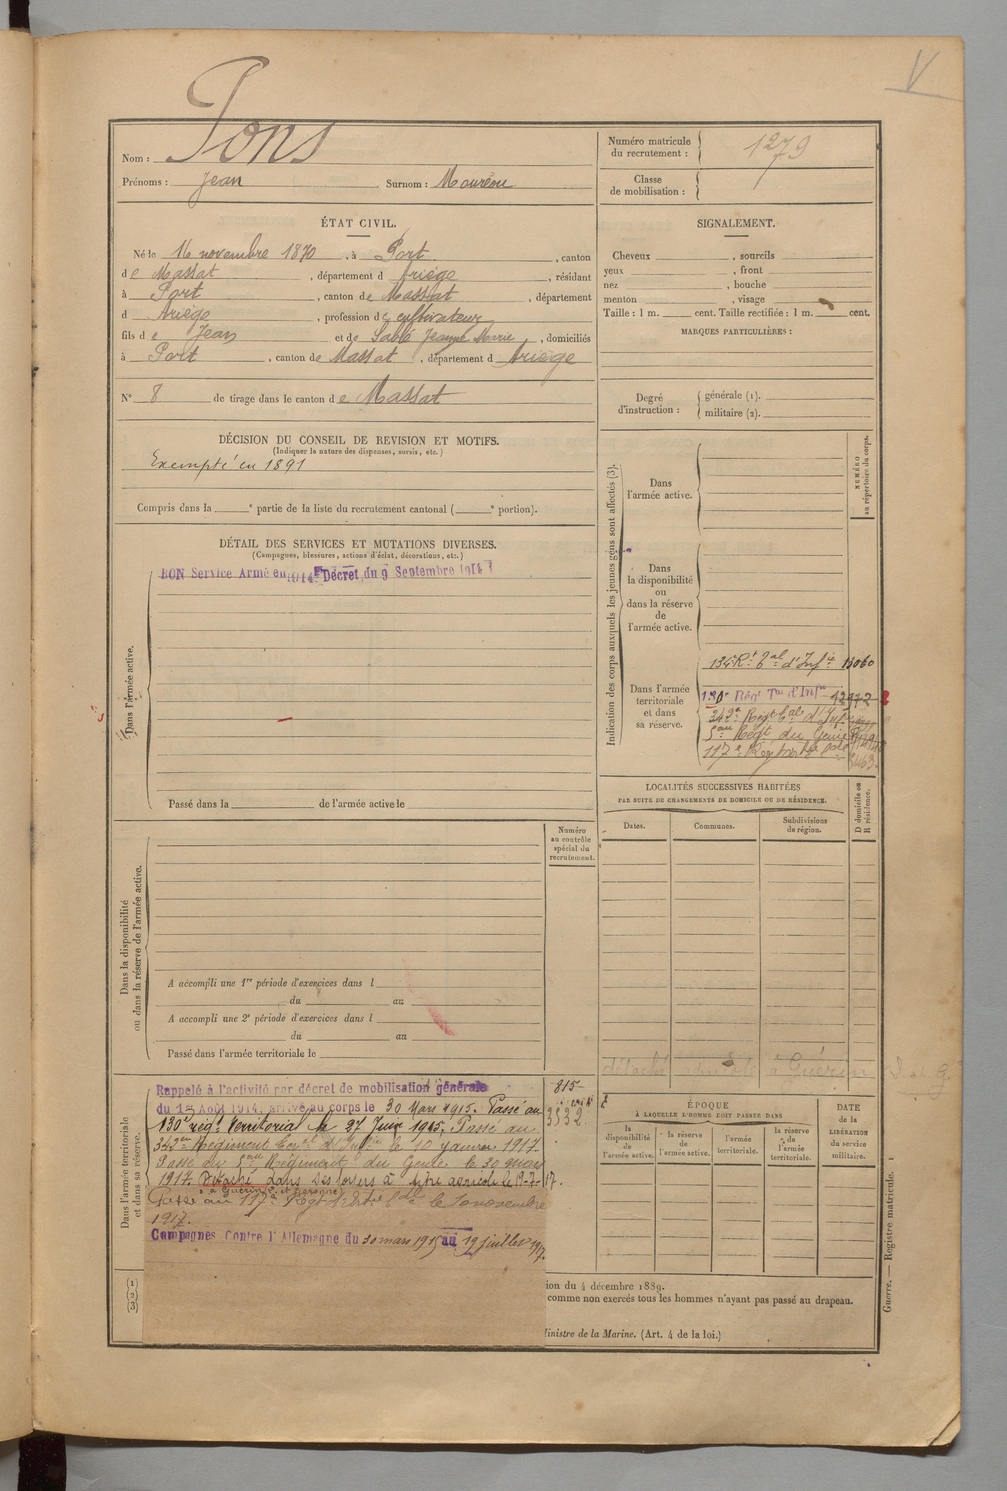 V
Nom : Pons
Prénoms : Jean Surnom : Mouréou
Numéro matricule du recrutement : 1279
Classe de mobilisation :
ÉTAT CIVIL.
Né le 16 novembre 1870, à Port, canton
de Massat, département d Ariège, résidant
à Port, canton de Massat, département
d Ariège, profession de cultivateur
fils de Jean et de Jeanne Marie, domiciliés
à Port, canton de Massat, département d Ariège
N° 8 de tirage dans le canton de Massat
SIGNALEMENT.
Cheveux , sourcils
yeux , front
nez , bouche
menton , visage
Taille : 1 m. cent. Taille rectifiée : 1 m. cent.
MARQUES PARTICULIÈRES :
Degré d'instruction : générale (1).
militaire (2).
DÉCISION DU CONSEIL DE REVISION ET MOTIFS.
(Indiquer la nature des dispenses, sursis, etc.)
Exempté en 1891
Compris dans la e partie de la liste du recrutement cantonal ( e portion).
DÉTAIL DES SERVICES ET MUTATIONS DIVERSES.
(Campagnes, blessures, actions d'éclat, décorations, etc.)
BON Service Armé en 1914 Décret du 9 Septembre 1914
Dans l'armée active.
Passé dans la de l'armée active le
Indication des corps auxquels les jeunes gens sont affectés (3).
NUMÉRO au répertoire du corps.
Dans l'armée active.
Dans la disponibilité ou dans la réserve de l'armée active.
Dans l'armée territoriale et dans sa réserve.
134 Rt Tal d'Infie 13060
130e Régt Tal d'Infie 12972
342e Regt
5eme Régt du Génie
117e Regt
LOCALITÉS SUCCESSIVES HABITÉES
PAR SUITE DE CHANGEMENTS DE DOMICILE OU DE RÉSIDENCE.
Dates. Communes. Subdivisions de région.
D domicile ou R résidence.
détaché agricole à Guérin
Dans la disponibilité ou dans la réserve de l'armée active.
Numéro au contrôle spécial du recrutement.
A accompli une 1re période d'exercices dans l
du au
A accompli une 2e période d'exercices dans l
du au
Passé dans l'armée territoriale le
Dans l'armée territoriale et dans sa réserve.
Rappelé à l'activité par décret de mobilisation générale
du 1er Août 1914, arrivé au corps le 30 Mars 1915. Passé au
130e régt Territorial le 27 Juin 1915. Passé au
342eme Régiment d'Infie le 10 janvier 1917.
Passé au 5eme Régiment du Génie le 30 mars
1917. Détaché dans ses foyers à titre agricole le 19-7-17.
à Guérin
Passé au 117e Régt le 10 novembre
1917.
Campagnes Contre l'Allemagne du 30 mars 1915 au 19 juillet 1917.
815
3532
ÉPOQUE
À LAQUELLE L'HOMME DOIT PASSER DANS
la disponibilité de l'armée active.
la réserve de l'armée active.
l'armée territoriale.
la réserve de l'armée territoriale.
DATE de la LIBÉRATION du service militaire.
(1)
(2)
(3)
ion du 4 décembre 1889.
comme non exercés tous les hommes n'ayant pas passé au drapeau.
Ministre de la Marine. (Art. 4 de la loi.)
Guerre. — Registre matricule. 1